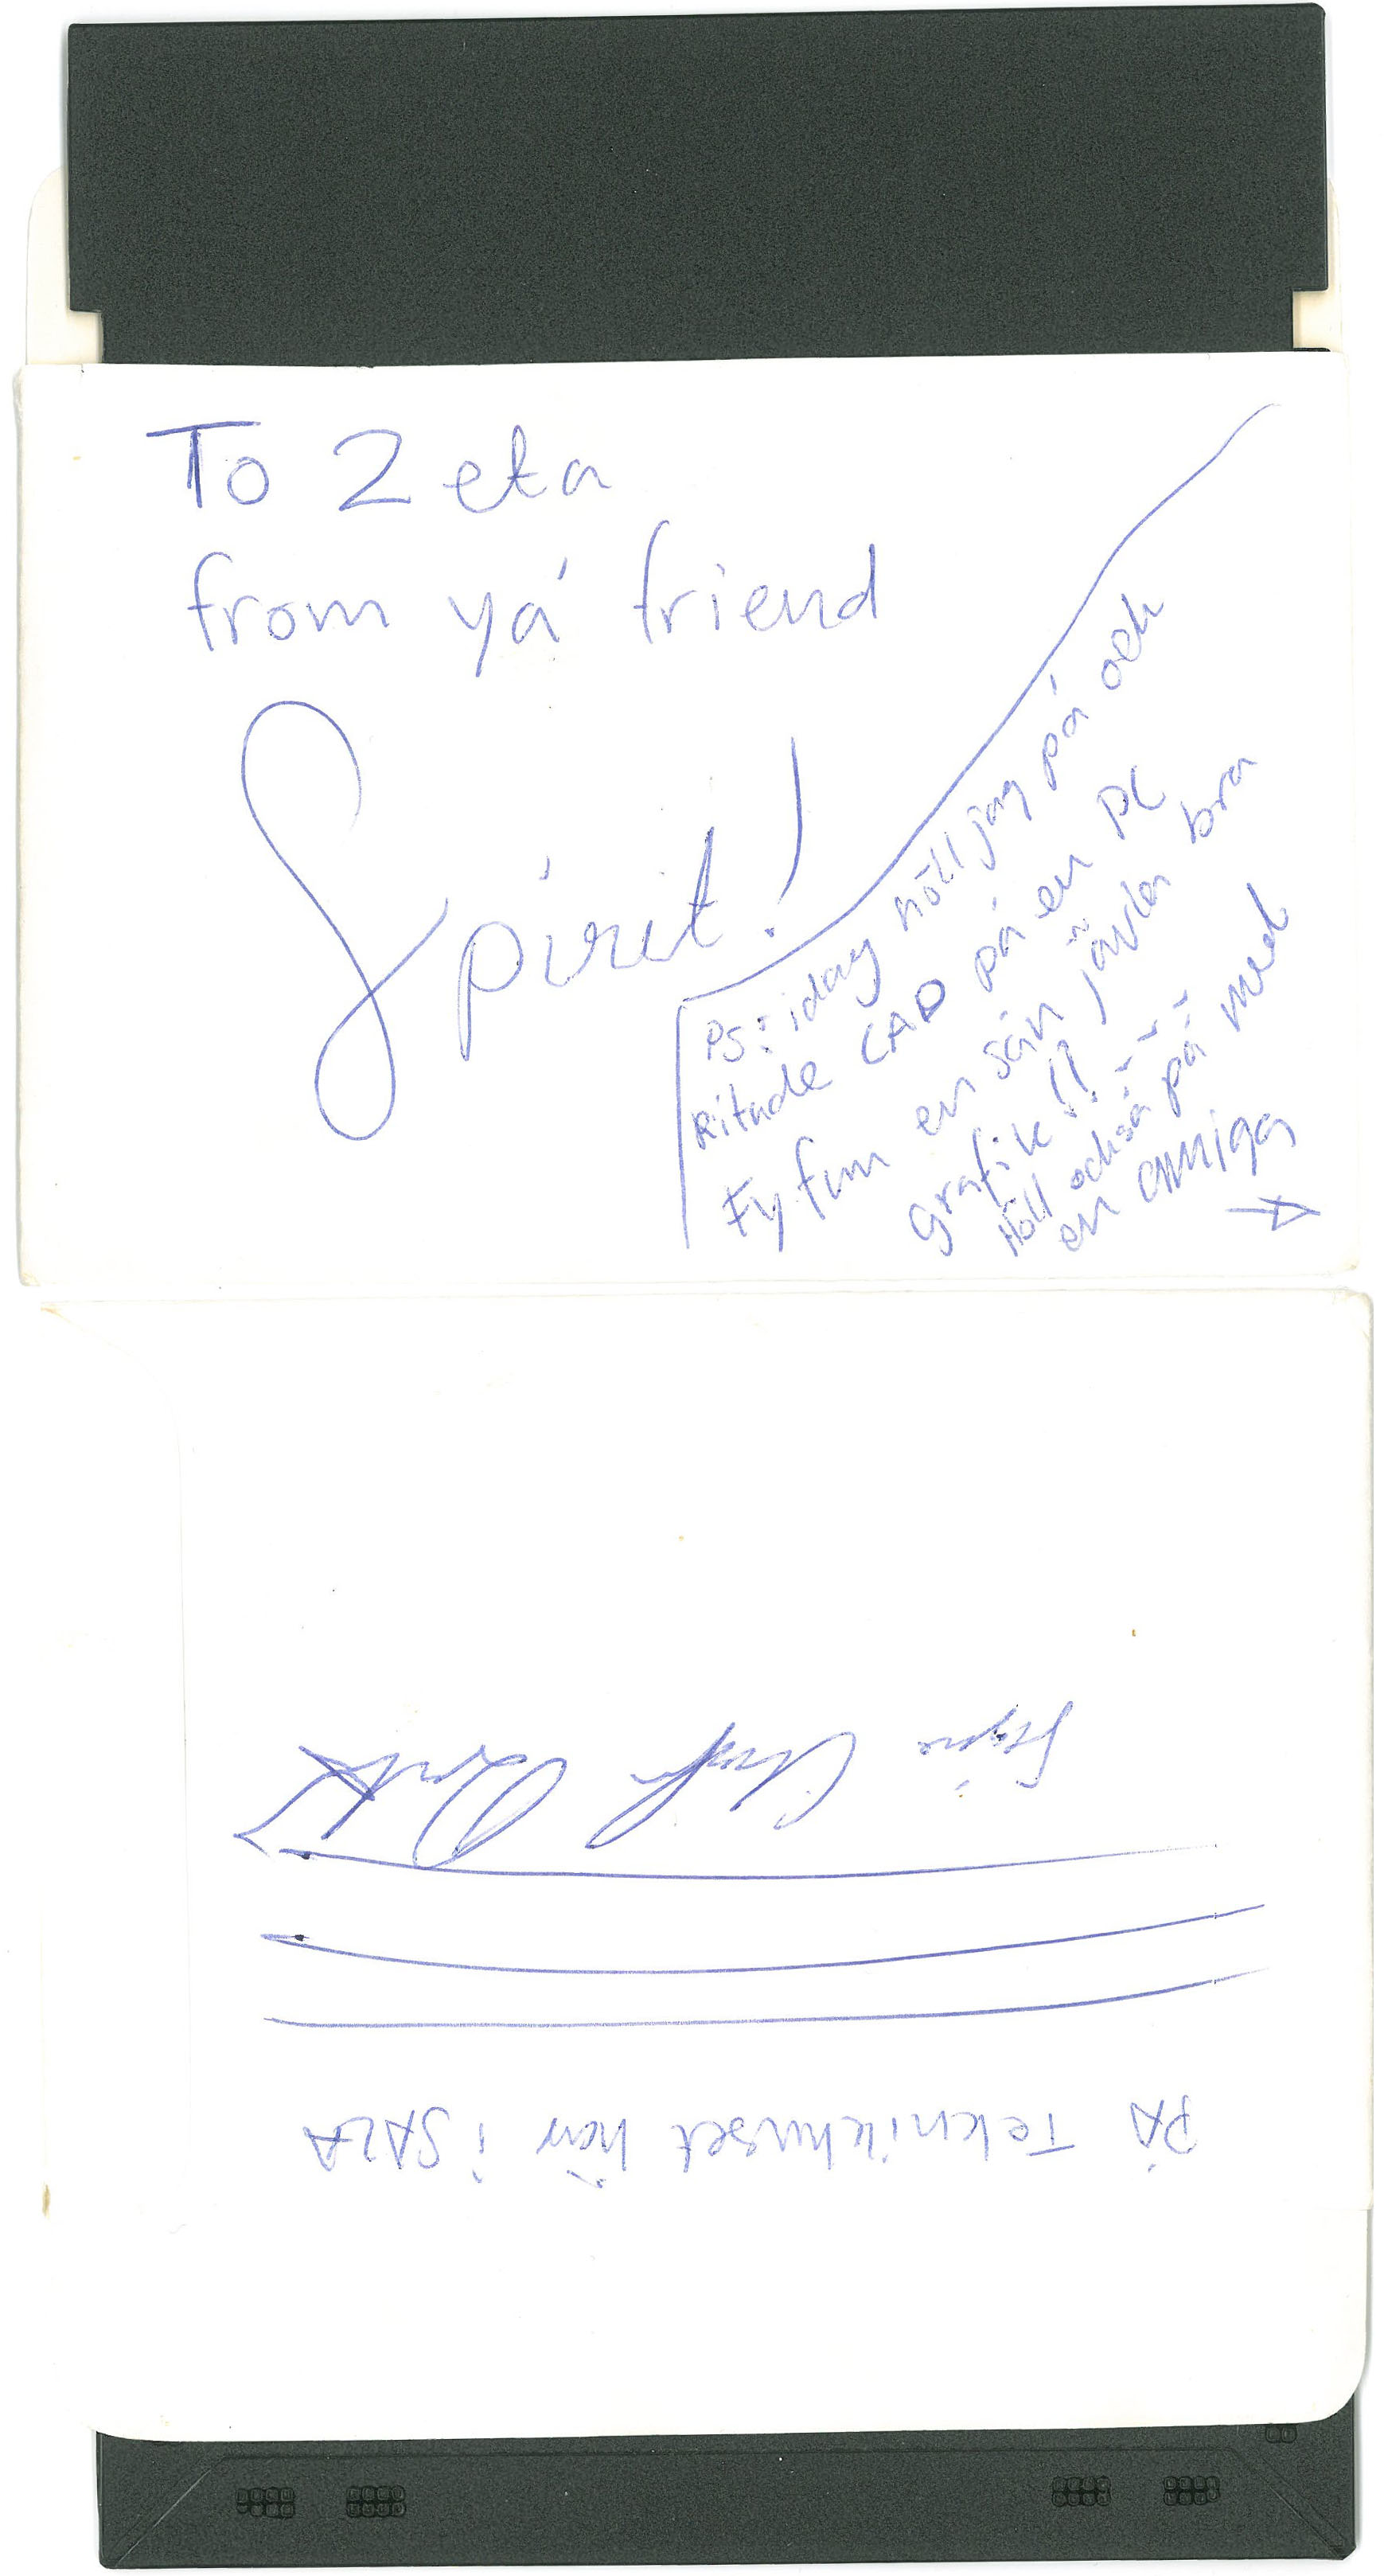 To Zeta
from yá friend
Spirit!
PS: idag höll jag på och
Ritade CAD på en PC
Fy fan en sån jävla bra
grafik!!
Höll också på med
en amiga
PÅ Teknikhuset här i SALA